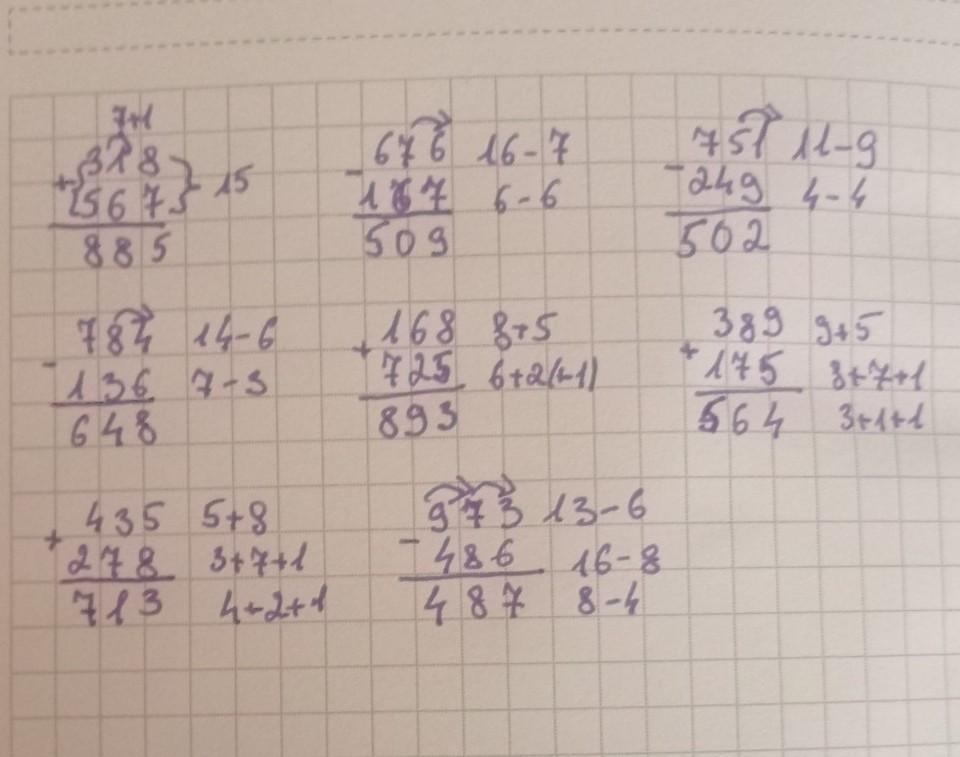 7+1
318
+ 567 } 15
885
676 16-7
- 167 6-6
509
751 11-9
- 249 4-4
502
784 14-6
- 136 7-3
648
168 8+5
+ 725 6+2(+1)
893
389 9+5
+ 175 8+7+1
564 3+1+1
435 5+8
+ 278 3+7+1
713 4+2+1
973 13-6
- 486 16-8
487 8-4